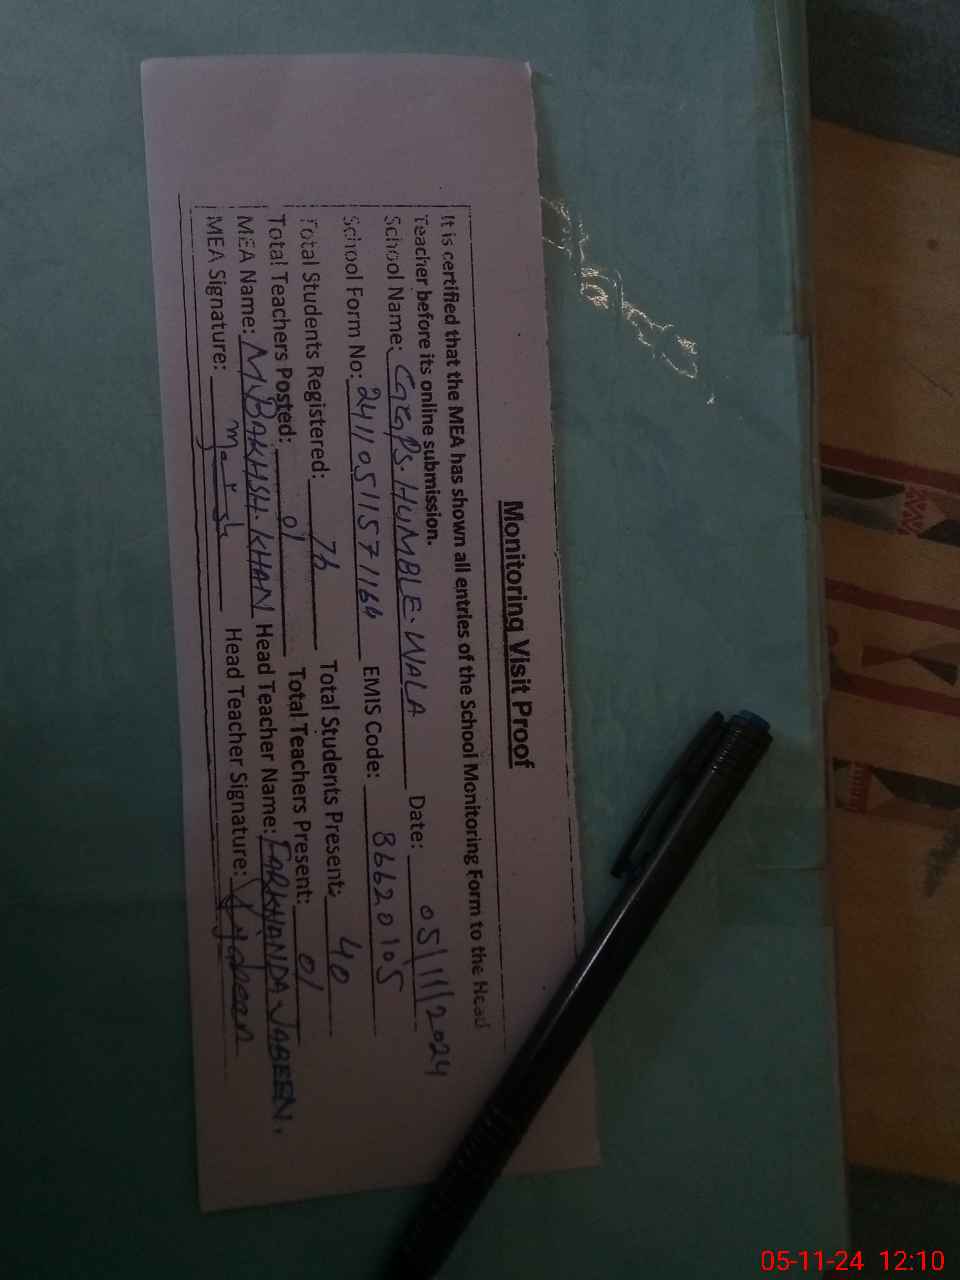 Monitoring Visit Proof
It is certified that the MEA has shown all entries of the School Monitoring Form to the Head
Teacher before its online submission.
School Name: GGPS. HUMBLE. WALA Date: 05/11/2024
School Form No: 24110511571164 EMIS Code: 86620105
Total Students Registered: 76 Total Students Present: 40
Total Teachers Posted: 01 Total Teachers Present: 01
MEA Name: M.BAKHSH.KHAN Head Teacher Name: FARKHANDA JABEEN.
MEA Signature: Head Teacher Signature: Jabeen
05-11-24 12:10